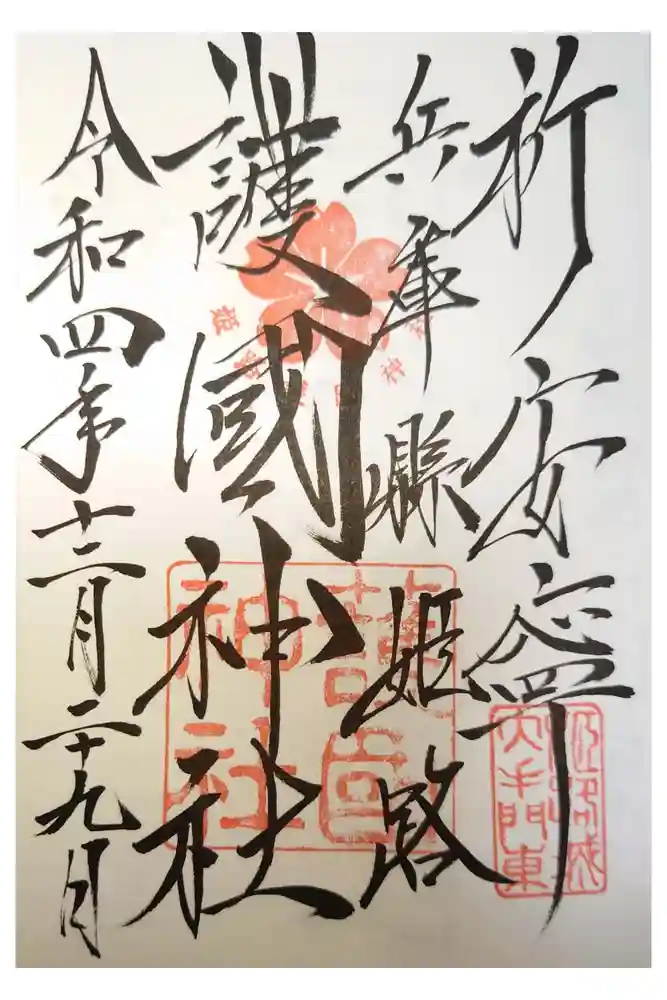 祈安寧
兵庫縣姫路
護國神社
令和四年十二月二十九日
護国
神社
姫路城
大手門東